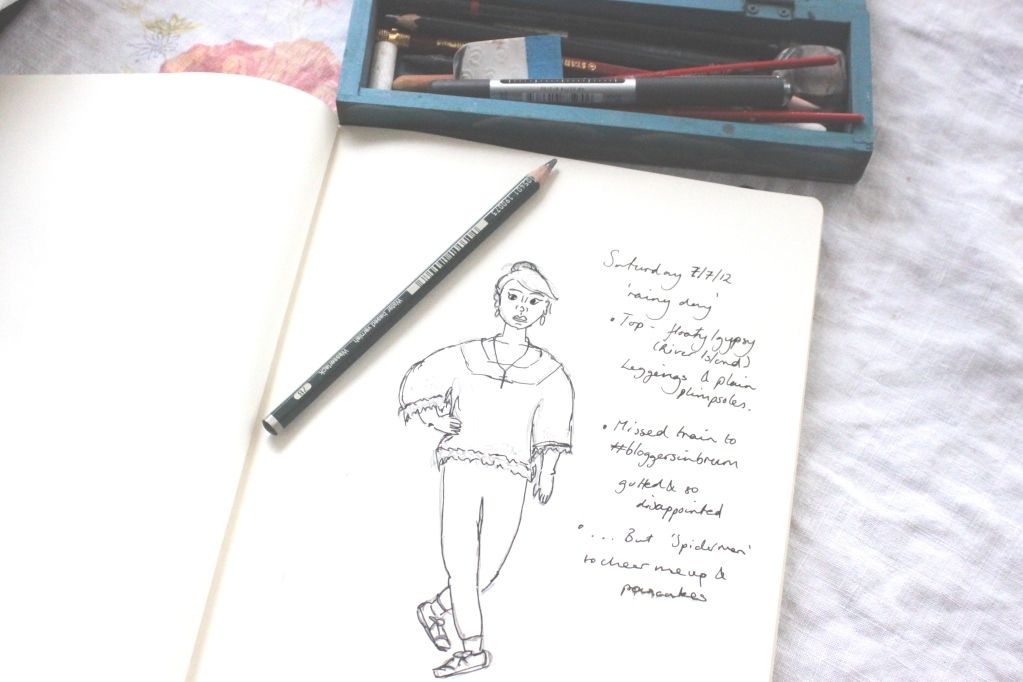 Saturday 7/7/12
'rainy day'
• Top - floaty/gypsy
(River Island)
Leggings & plain
plimpsoles.
• Missed train to
#bloggersinbrum
gutted & so
disappointed
• ... But 'Spiderman'
to cheer me up &
pancakes
Water based varnish Wasserlack